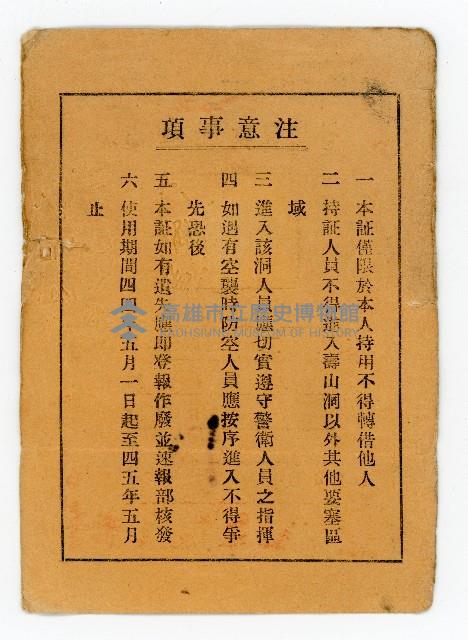 注意事項
一 本証僅限於本人持用不得轉借他人
二 持証人員不得進入壽山洞以外其他要塞區
域
三 進入該洞人員應切實遵守警衛人員之指揮
四 如遇有空襲時防空人員應按序進入不得爭
先恐後
五 本証如有遺失應即登報作廢並速報部核發
六 使用期間四 年五月一日起至四五年五月
止
高雄市立歷史博物館
KAOHSIUNG MUSEUM OF HISTORY